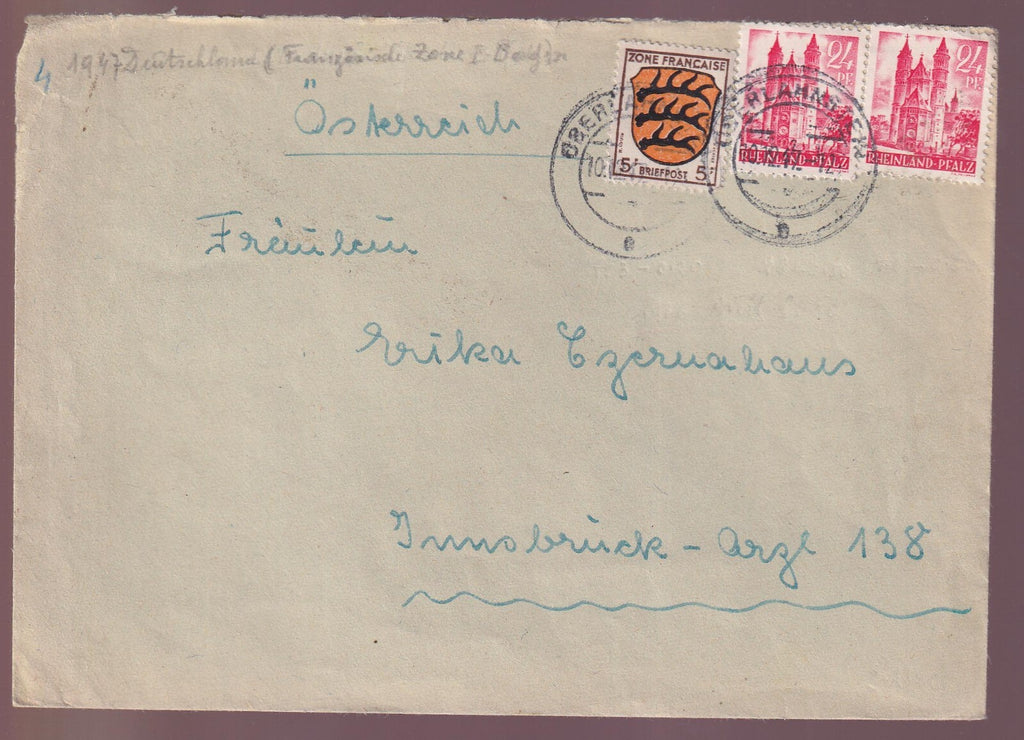 4 1947 Deutschland ( Französische Zone I. Baden
Österreich
ZONE FRANCAISE
5 BRIEFPOST 5
24
PF.
RHEINLAND-PFALZ
24
PF.
RHEINLAND-PFALZ
OBERLAHNSTEIN
b
Fräulein
Erika Czernahaus
Innsbrück - Arzl 138